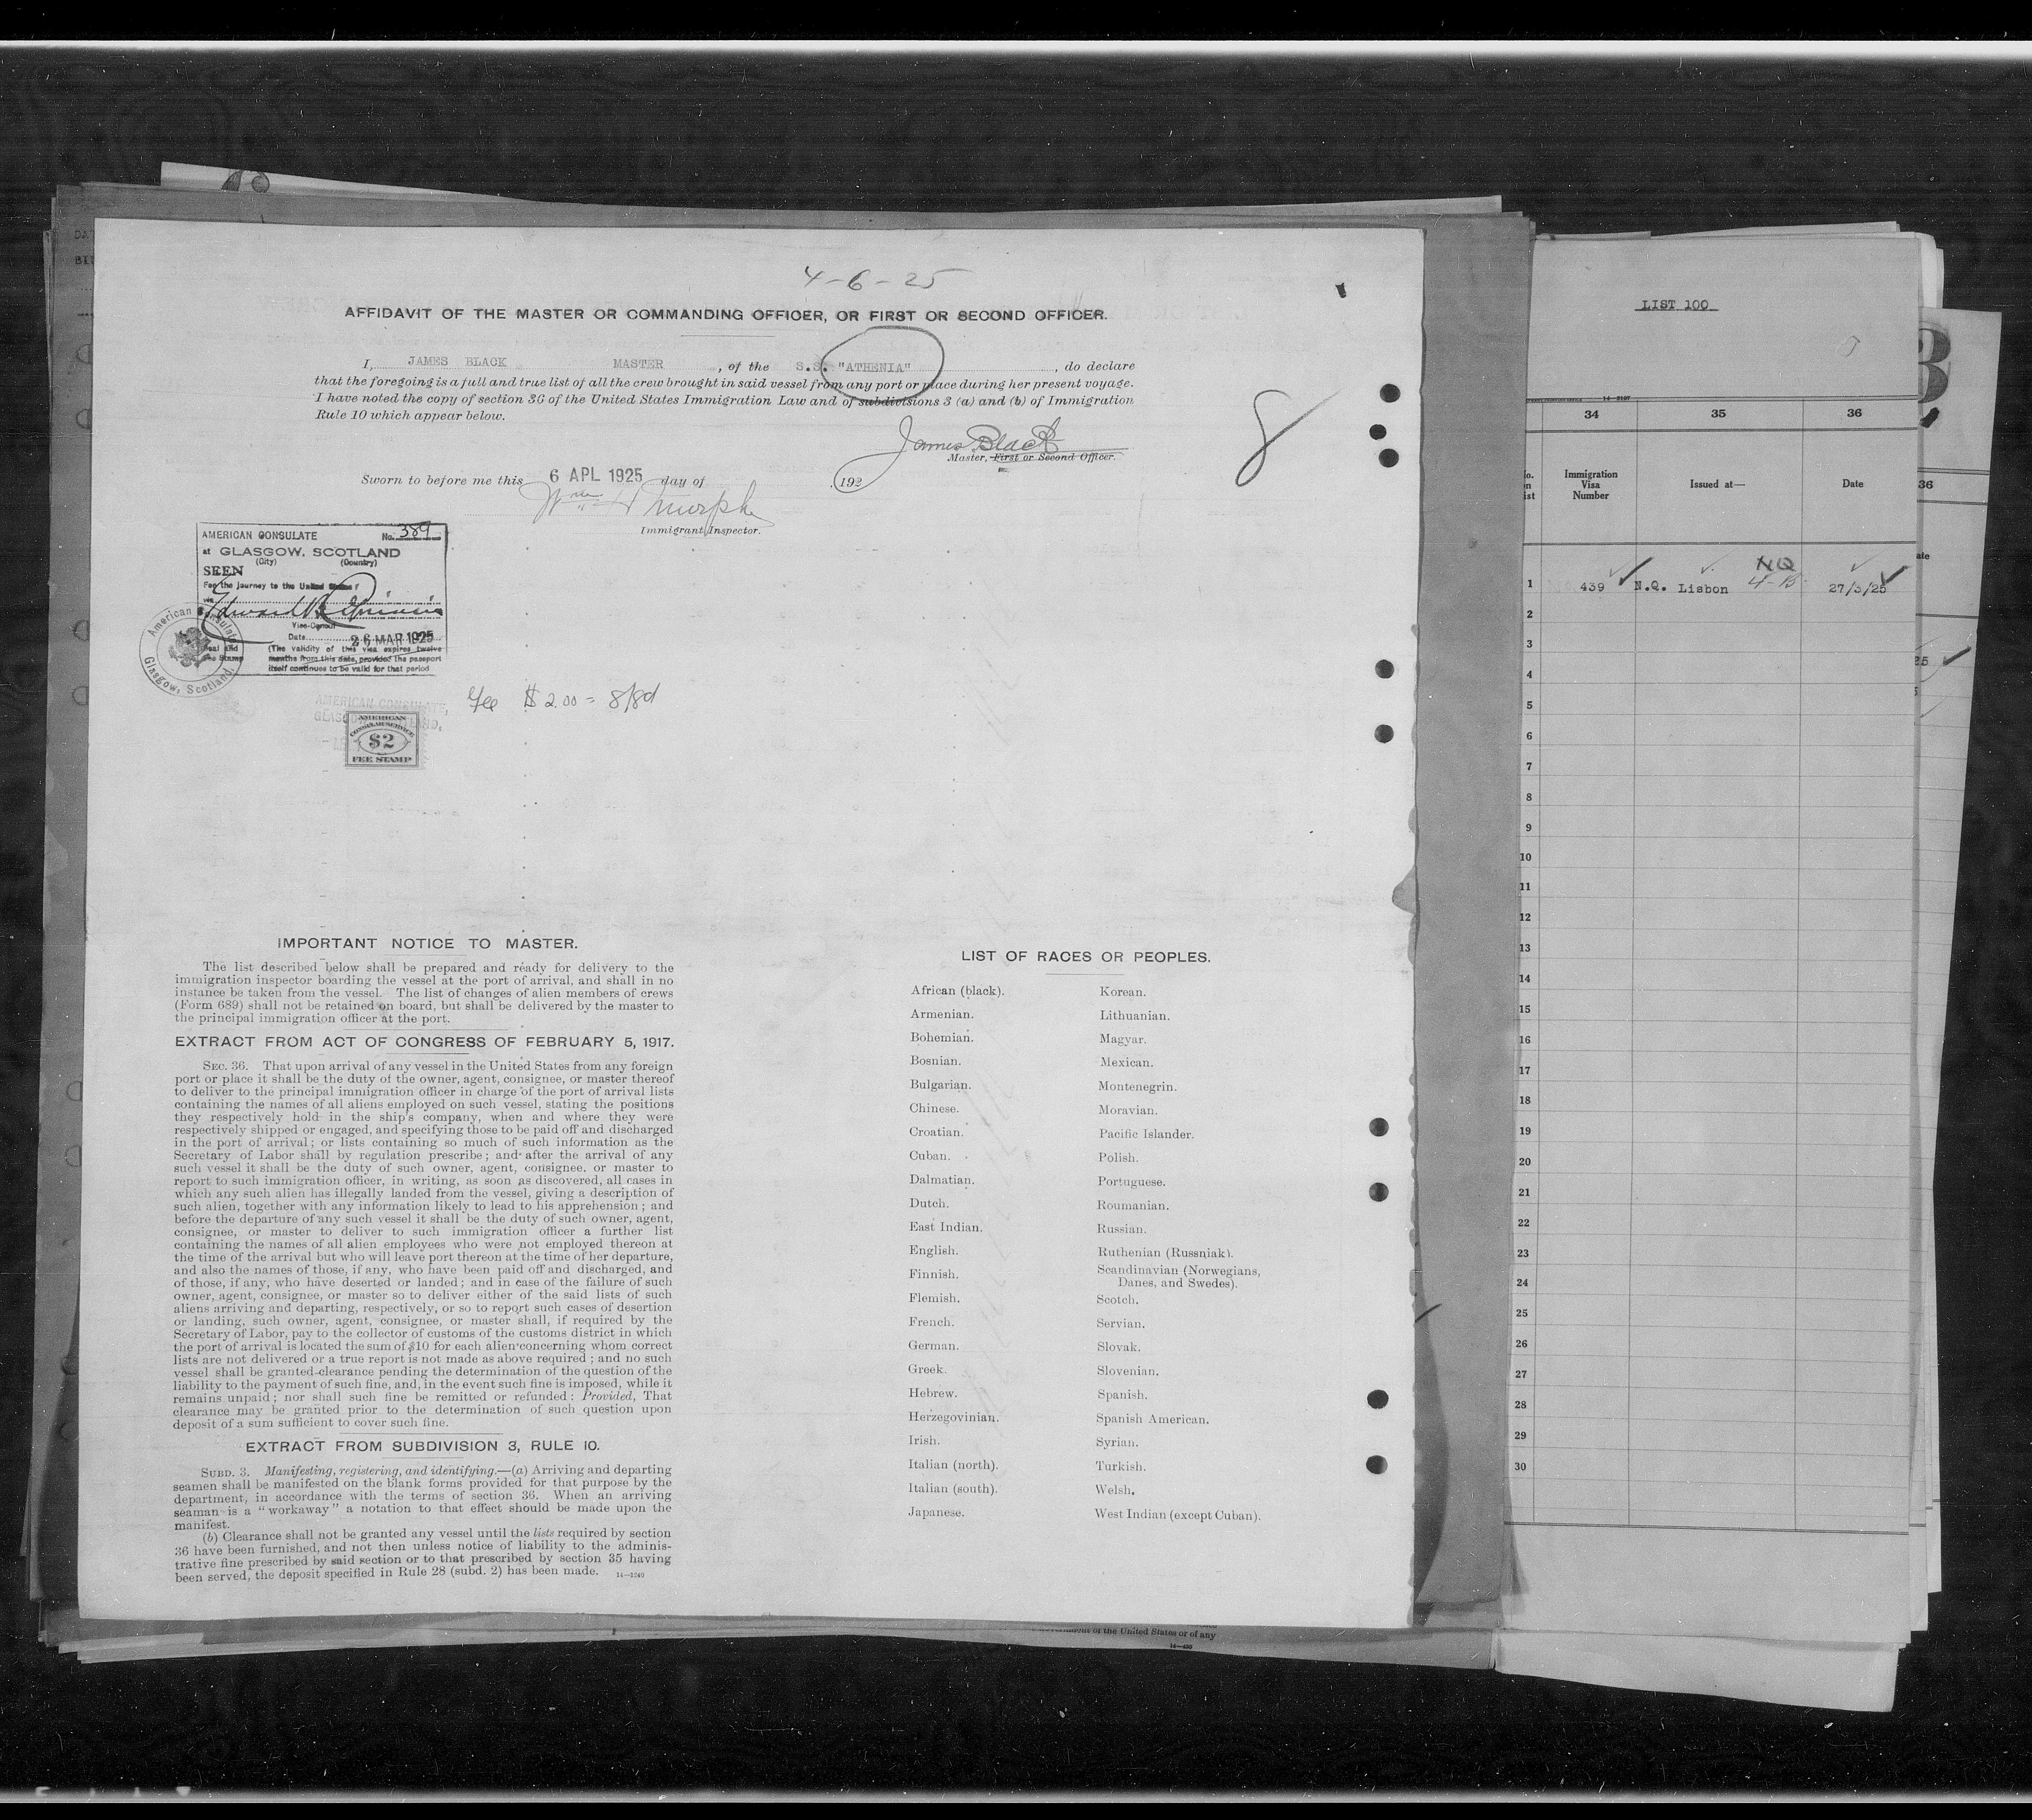 4-6-25
AFFIDAVIT OF THE MASTER OR COMMANDING OFFICER, OR FIRST OR SECOND OFFICER.
I, JAMES BLACK MASTER, of the S.S. "ATHENIA", do declare
that the foregoing is a full and true list of all the crew brought in said vessel from any port or place during her present voyage.
I have noted the copy of section 36 of the United States Immigration Law and of subdivisions 3 (a) and (b) of Immigration
Rule 10 which appear below.
James Black
Master, First or Second Officer.
8
Sworn to before me this 6 APL 1925 day of , 192
Wm H Murphy
Immigrant Inspector.
AMERICAN CONSULATE No. 389
at GLASGOW, SCOTLAND
(City) (Country)
SEEN
For the journey to the United States
via
Vice-Consul
Date 26 MAR 1925
(The validity of this visa expires twelve
months from this date, provided the passport
itself continues to be valid for that period
American Consulate
Glasgow, Scotland.
AMERICAN CONSULATE,
Fee $2.00 = 8/8d
AMERICAN
CONSULAR SERVICE
$2
FEE STAMP
IMPORTANT NOTICE TO MASTER.
The list described below shall be prepared and ready for delivery to the
immigration inspector boarding the vessel at the port of arrival, and shall in no
instance be taken from the vessel. The list of changes of alien members of crews
(Form 689) shall not be retained on board, but shall be delivered by the master to
the principal immigration officer at the port.
EXTRACT FROM ACT OF CONGRESS OF FEBRUARY 5, 1917.
SEC. 36. That upon arrival of any vessel in the United States from any foreign
port or place it shall be the duty of the owner, agent, consignee, or master thereof
to deliver to the principal immigration officer in charge of the port of arrival lists
containing the names of all aliens employed on such vessel, stating the positions
they respectively hold in the ship's company, when and where they were
respectively shipped or engaged, and specifying those to be paid off and discharged
in the port of arrival; or lists containing so much of such information as the
Secretary of Labor shall by regulation prescribe; and after the arrival of any
such vessel it shall be the duty of such owner, agent, consignee, or master to
report to such immigration officer, in writing, as soon as discovered, all cases in
which any such alien has illegally landed from the vessel, giving a description of
such alien, together with any information likely to lead to his apprehension; and
before the departure of any such vessel it shall be the duty of such owner, agent,
consignee, or master to deliver to such immigration officer a further list
containing the names of all alien employees who were not employed thereon at
the time of the arrival but who will leave port thereon at the time of her departure,
and also the names of those, if any, who have been paid off and discharged, and
of those, if any, who have deserted or landed; and in case of the failure of such
owner, agent, consignee, or master so to deliver either of the said lists of such
aliens arriving and departing, respectively, or so to report such cases of desertion
or landing, such owner, agent, consignee, or master shall, if required by the
Secretary of Labor, pay to the collector of customs of the customs district in which
the port of arrival is located the sum of $10 for each alien concerning whom correct
lists are not delivered or a true report is not made as above required; and no such
vessel shall be granted clearance pending the determination of the question of the
liability to the payment of such fine, and, in the event such fine is imposed, while it
remains unpaid; nor shall such fine be remitted or refunded: Provided, That
clearance may be granted prior to the determination of such question upon
deposit of a sum sufficient to cover such fine.
EXTRACT FROM SUBDIVISION 3, RULE 10.
SUBD. 3. Manifesting, registering, and identifying.—(a) Arriving and departing
seamen shall be manifested on the blank forms provided for that purpose by the
department, in accordance with the terms of section 36. When an arriving
seaman is a "workaway" a notation to that effect should be made upon the
manifest.
(b) Clearance shall not be granted any vessel until the lists required by section
36 have been furnished, and not then unless notice of liability to the adminis-
trative fine prescribed by said section or to that prescribed by section 35 having
been served, the deposit specified in Rule 28 (subd. 2) has been made. 14—1240
LIST OF RACES OR PEOPLES.
African (black).
Armenian.
Bohemian.
Bosnian.
Bulgarian.
Chinese.
Croatian.
Cuban.
Dalmatian.
Dutch.
East Indian.
English.
Finnish.
Flemish.
French.
German.
Greek.
Hebrew.
Herzegovinian.
Irish.
Italian (north).
Italian (south).
Japanese.
Korean.
Lithuanian.
Magyar.
Mexican.
Montenegrin.
Moravian.
Pacific Islander.
Polish.
Portuguese.
Roumanian.
Russian.
Ruthenian (Russniak).
Scandinavian (Norwegians,
Danes, and Swedes).
Scotch.
Servian.
Slovak.
Slovenian.
Spanish.
Spanish American.
Syrian.
Turkish.
Welsh.
West Indian (except Cuban).
of the United States or of any
LIST 100
34 35 36
Immigration
Visa
Number
Issued at—
Date
36
1 439 N.Q. Lisbon NQ 27/3/25
2
3
4
5
6
7
8
9
10
11
12
13
14
15
16
17
18
19
20
21
22
23
24
25
26
27
28
29
30